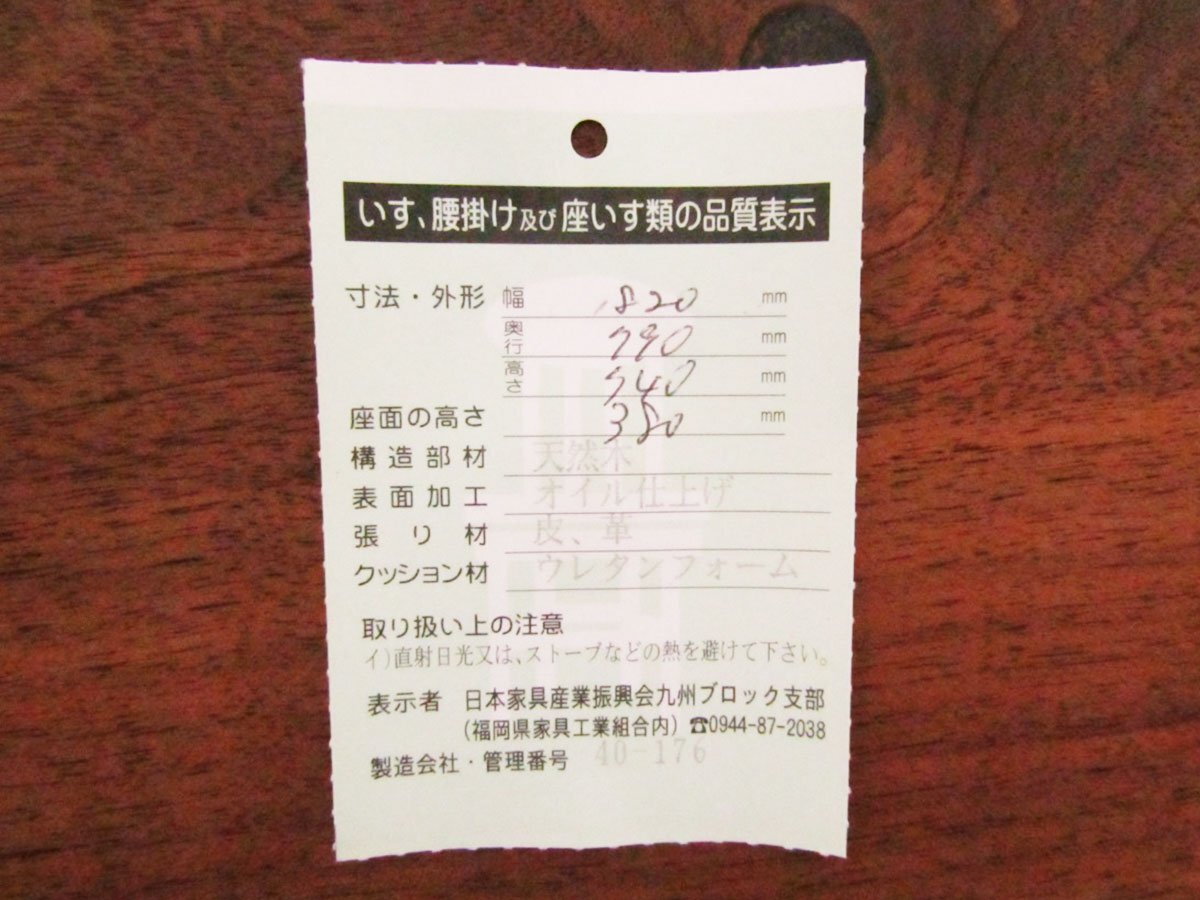 いす、腰掛け及び座いす類の品質表示
寸法・外形 幅 820 mm
奥行 790 mm
高さ 740 mm
座面の高さ 380 mm
構造部材 天然木
表面加工 オイル仕上げ
張り材 皮、革
クッション材 ウレタンフォーム
取り扱い上の注意
イ)直射日光又は、ストーブなどの熱を避けて下さい。
表示者 日本家具産業振興会九州ブロック支部
(福岡県家具工業組合内) ☎0944-87-2038
製造会社・管理番号 40-176